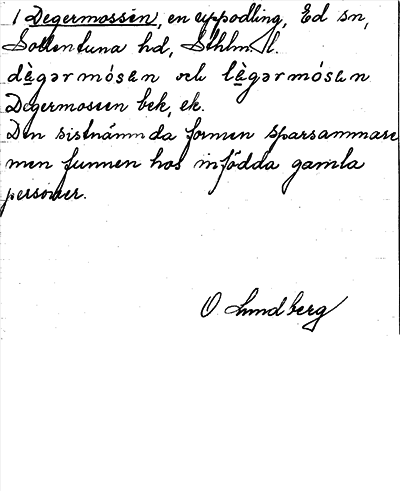 1 Degermossen, en uppodling, Ed sn,
Sollentuna hd, Sthlms l.
dègərmósən och lègərmósən
Degermossen bek, ek.
Den sistnämnda formen sparsammare
men funnen hos infödda gamla
personer.
O Lundberg